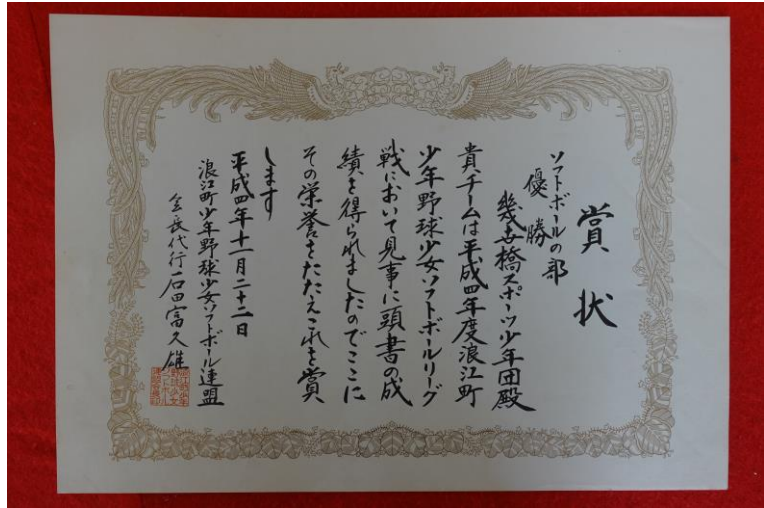 賞状
ソフトボールの部
優勝
幾世橋スポーツ少年団殿
貴チームは平成四年度浪江町
少年野球少女ソフトボールリーグ
戦において見事に頭書の成
績を得られましたのでここに
その栄誉をたたえこれを賞
します
平成四年十一月二十二日
浪江町少年野球少女ソフトボール連盟
会長代行石田富久雄